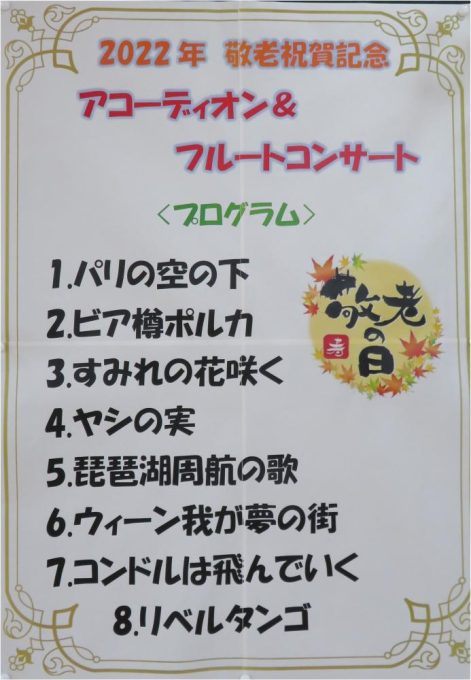 2022年 敬老祝賀記念
アコーディオン&
フルートコンサート
<プログラム>
1.パリの空の下
2.ビア樽ポルカ
3.すみれの花咲く
4.ヤシの実
5.琵琶湖周航の歌
6.ウィーン我が夢の街
7.コンドルは飛んでいく
8.リベルタンゴ
敬老
の
日
寿